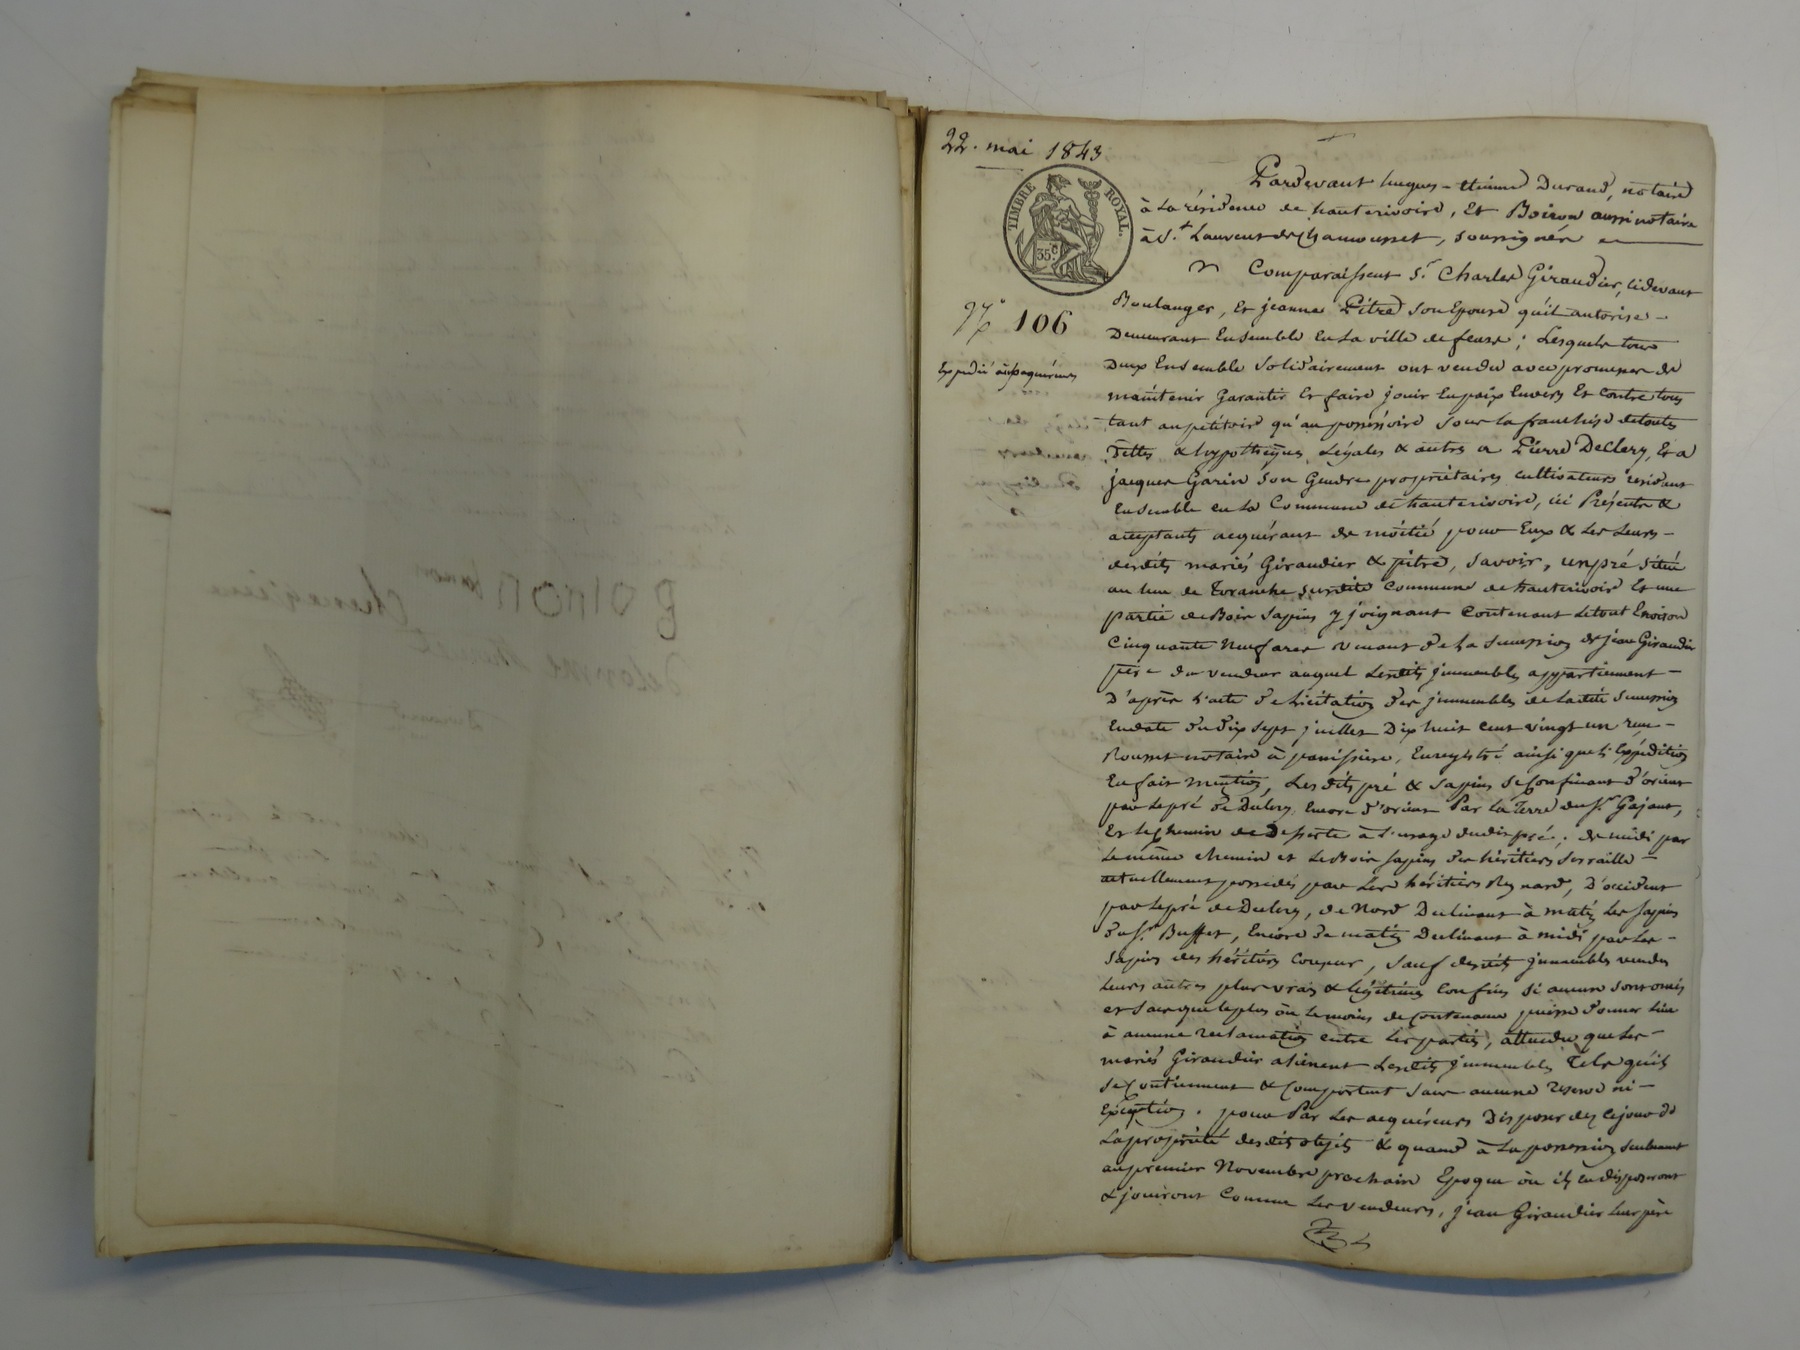 22. mai 1843
TIMBRE ROYAL.
35 c.
N° 106
Expédié aux acquéreurs
Pardevant hugues-Etienne Durand, notaire
à La résidence de hauterivoire, Et Boiron aussi notaire
à St. Laurent de Chamousset, soussignés
Comparaissent Sr. Charles Giraudier, cidevant
Boulanger, Et jeanne Pitre son Epouse qu'il autorise
Demeurant Ensemble En La ville de feurs ; Lesquels tous
Deux Ensemble Solidairement ont vendu avec promesse de
maintenir Garantir Et faire jouir En paix Envers Et Contre tous
tant au pétitoire qu'au possessoire sous La franchise de toutes
Dettes & hypothèques Légales & autres a Pierre DeClery, Et a
jacques Garin Son Gendre propriétaires cultivateurs residant
Ensemble en La Commune de hauterivoire, ici Présents &
acceptants acquérant de moitié pour Eux & Les Leurs
desdits mariés Giraudier & pitre, Savoir, un pré Situé
au lieu de Tvranche susdite Commune de hauterivoire Et une
partie de Bois Sapins y joignant Contenant Le tout Environ
Cinquante Neuf ares venant de La Succession de jean Giraudier
père du vendeur auquel Lesdits jmmeubles appartiennent
D'après L'acte de Licitation des jmmeubles de Ladite Succession
En date du dix Sept juillet Dix huit cent vingt un reçu
Rousset notaire à panissière, Enregistré ainsi que L'Expédition
En fait mention, Les dits pré & Sapins Se Confinant d'orient
par Le pré de Declery Encore d'orient Par La Terre du Sr. Gajant,
Et Le Chemin de Desserte à L'usage dudit pré ; de midi par
Le même chemin et Le Bois Sapins des héritiers Serraille
actuellement possédés par Les héritiers Reynard, D'occident
par Le pré de Declery, de Nord Declinant à matin Les Sapins
du Sr. Buffet, Encore de matin Declinant à midi par Les
Sapins des héritiers Coupur, Sauf desdits jmmeubles vendus
Leurs autres plus vrais & Légitimes Confins Si aucuns sont omis
et Sans que Le plus ou Le moins de Contenance puisse donner Lieu
à aucune reclamation entre Les parties, attendu que Les
mariés Giraudier aliènent Lesdits jmmeubles Tels qu'ils
Se Contiennent & Comportent Sans aucune reserve ni
Exception. pour Par Les acquéreurs Disposer dez ce jour de
La propriété desdits objets & quand à La possession Seulement
au premier Novembre prochain Epoque où ils En disposeront
& jouiront Comme Les vendeurs, jean Giraudier Leur père